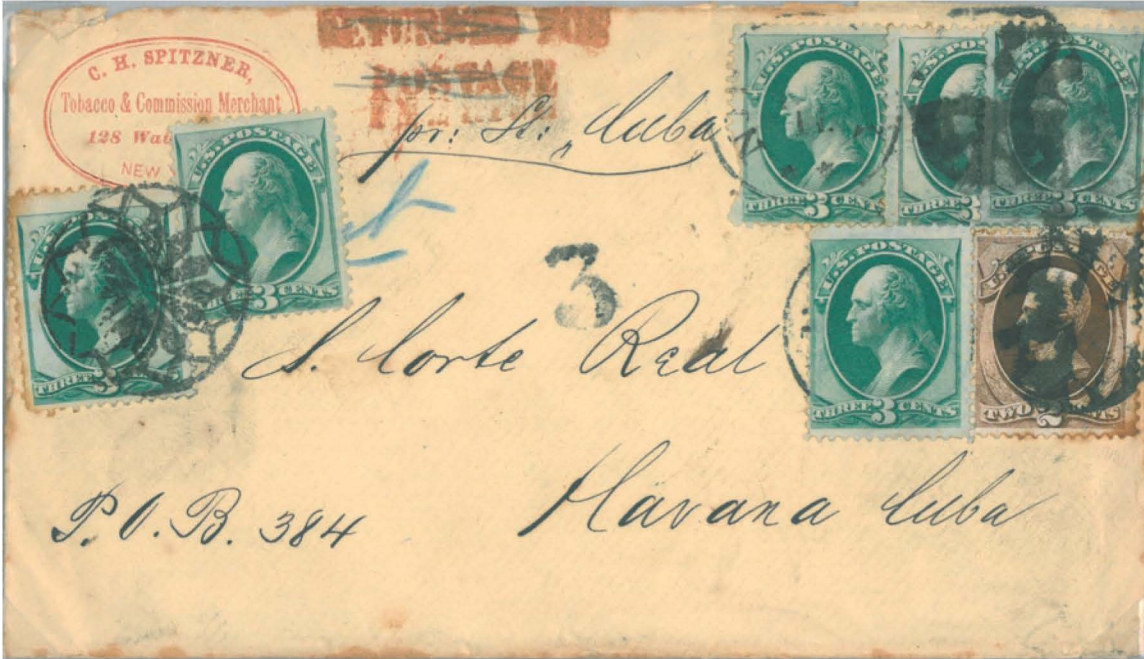 C. H. SPITZNER,
Tobacco & Commission Merchant
128
NEW
POSTAGE
pr: St: „ Cuba
U.S. POSTAGE
THREE 3 CENTS
U.S. POSTAGE
THREE 3 CENTS
U.S. POSTAGE
THREE 3 CENTS
U.S. POSTAGE
THREE 3 CENTS
U.S. POSTAGE
THREE 3 CENTS
U.S. POSTAGE
THREE 3 CENTS
TWO 2 CENTS
3
S. Corte Real
Havana Cuba
P.O.B. 384